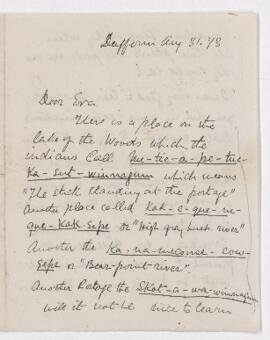 Dufferin Aug 31. 73
Dear Eva
There is a place on the
Lake of the Woods which the
indians Call Me-tic-a-pe-tic-
Ka-Sut-winnagum which means
"The stick standing at the portage"
Another place called Kak-e-que-ne-
que-Kak-Sepe or "High gray bush river"
Another the Ka-na-meconse-cow-
Sepe or "Bear-point river".
Another Portage the Skot-a-wa-winnagum
will it not be nice to learn